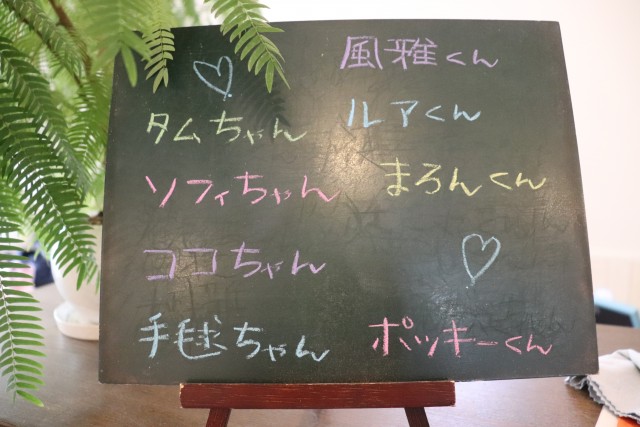 風雅くん
タムちゃん
ルアくん
ソフィちゃん
まろんくん
ココちゃん
手毬ちゃん
ポッキーくん